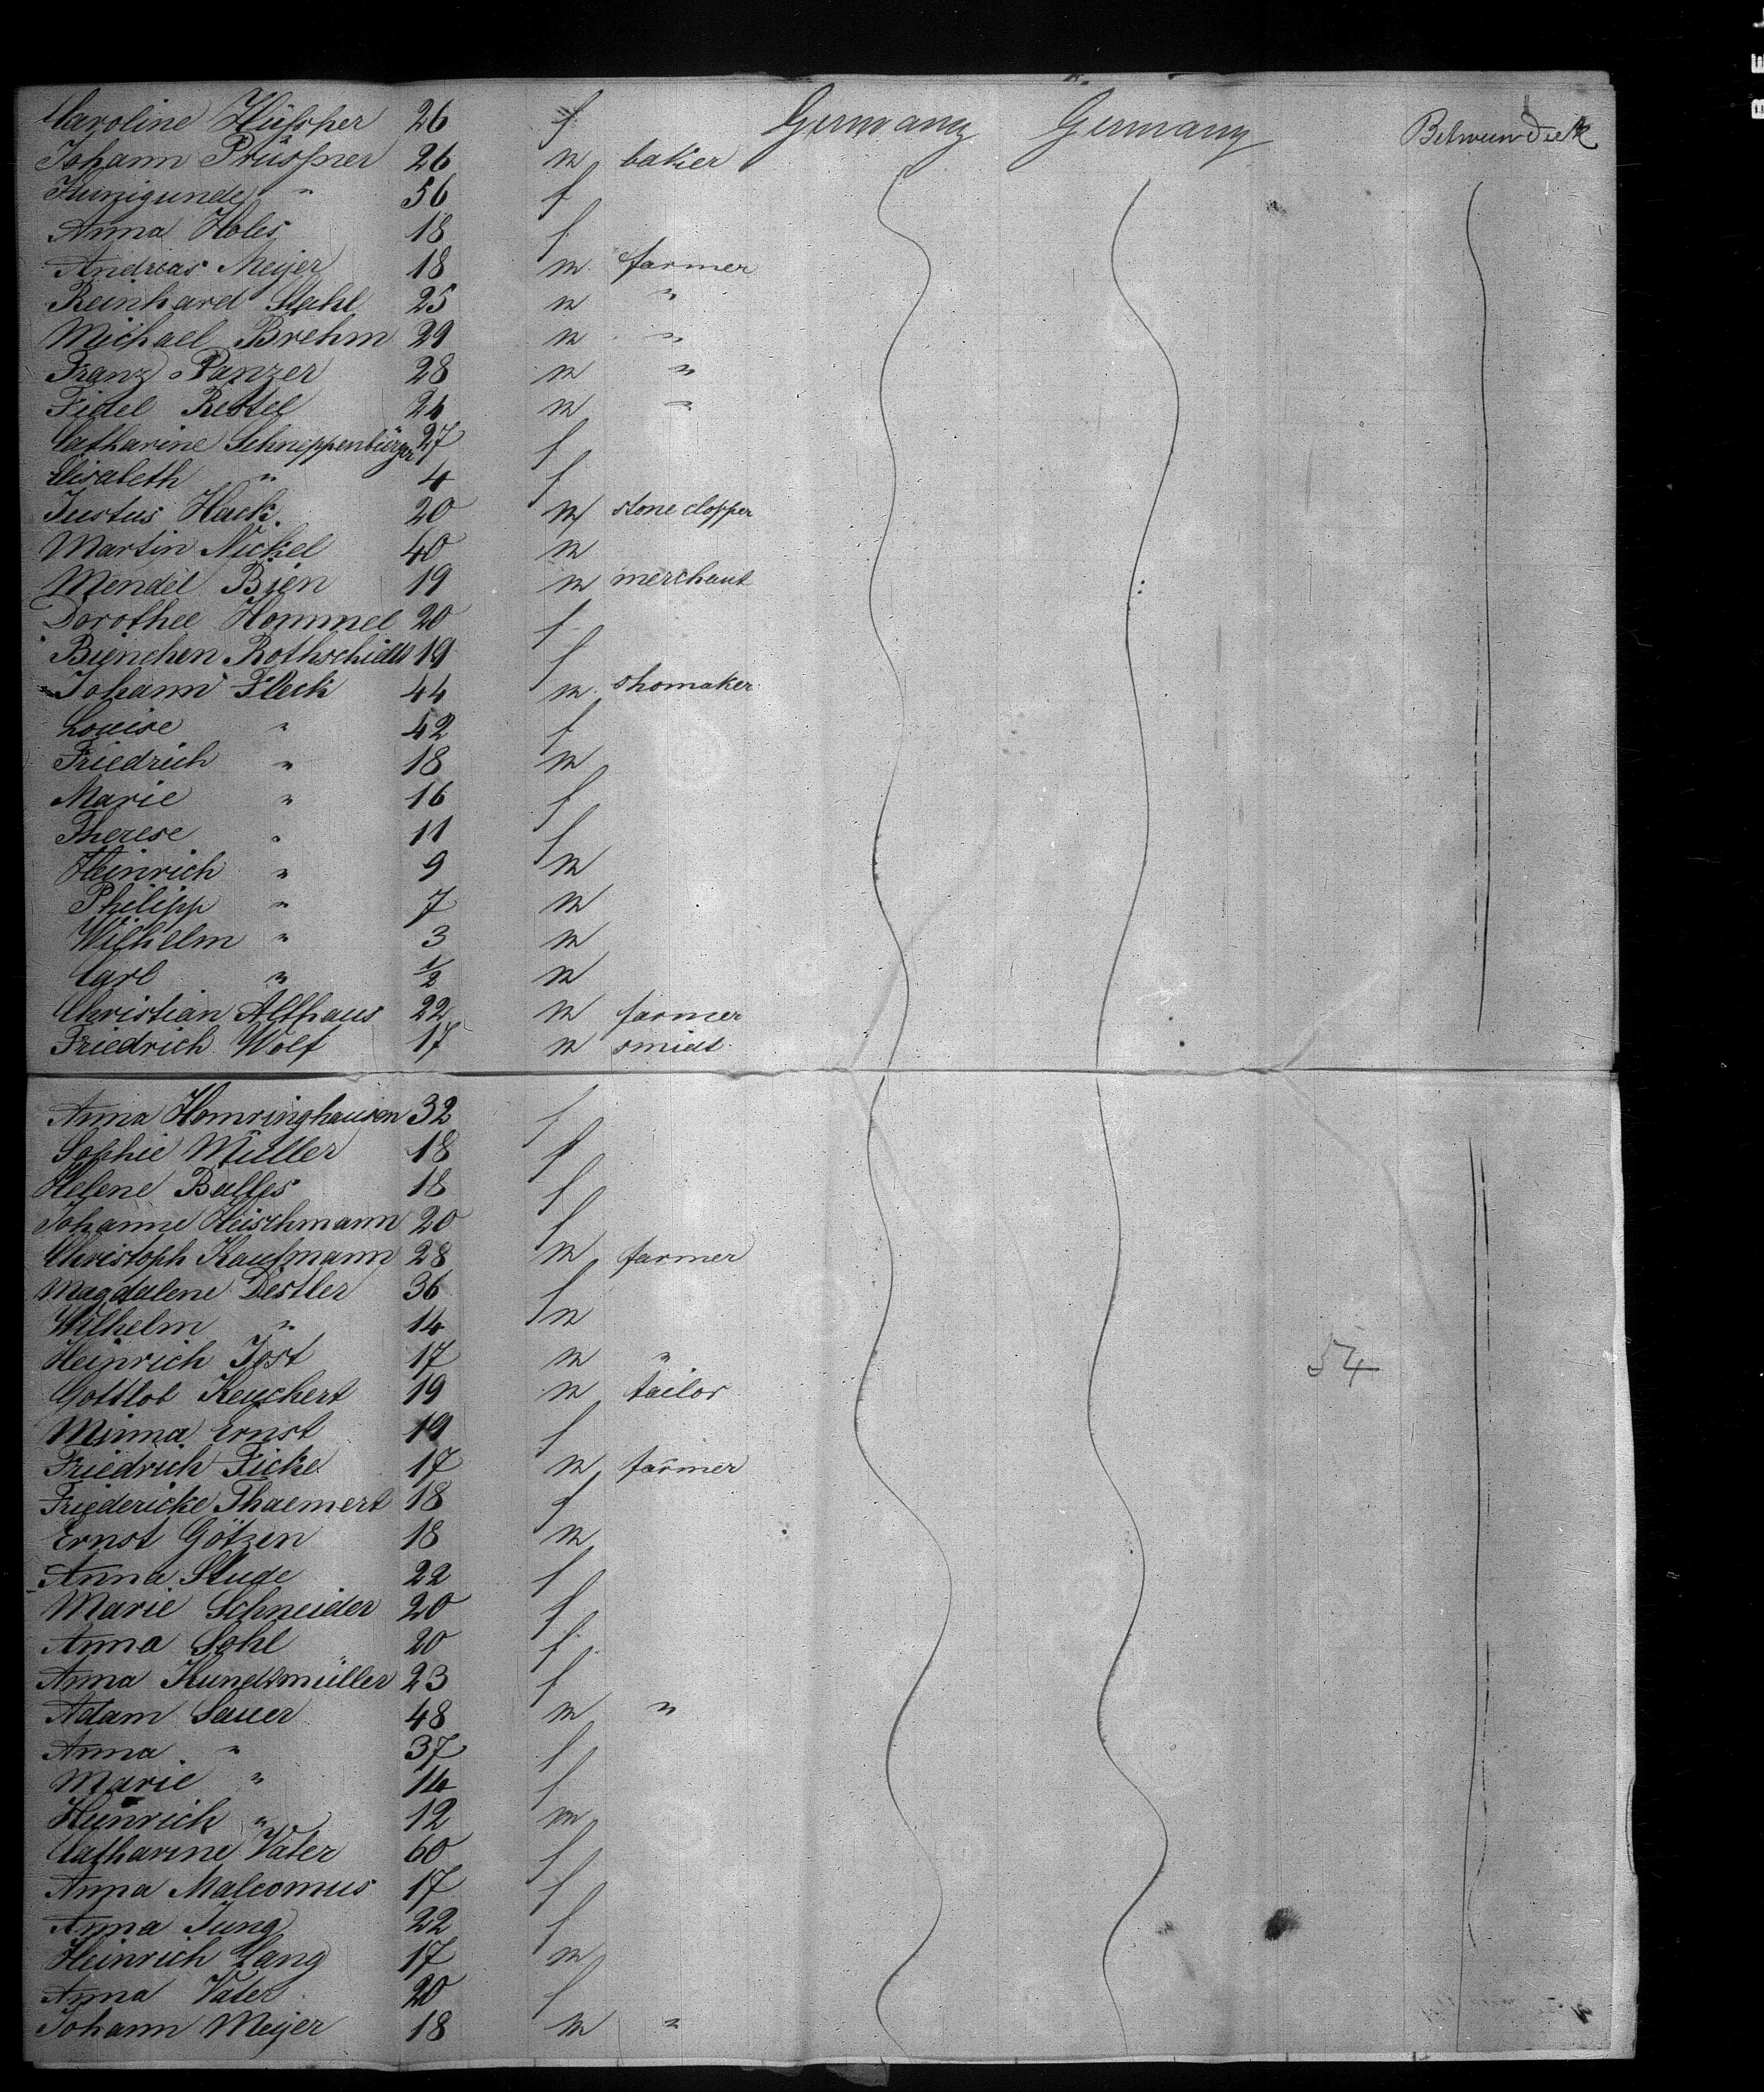 Caroline Hüfsper 26 f Germany Germany Between Deck
Johann Prüfsner 26 m baker
Kunigunde " 56 f
Anna Holes 18 f
Andreas Meyer 18 m farmer
Reinhard Stahl 25 m "
Michael Brehm 29 m "
Franz Panzer 28 m "
Fidel Restel 24 m "
Catharine Schneppenbürger 27 f
Elisabeth " 4 f
Justus Hack 20 m stone clopper
Martin Nickel 40 m
Mendel Bien 19 m merchant
Dorothee Hommel 20 f
Bienchen Rothschild 19 f
Johann Fleck 44 m shomaker
Louise " 42 f
Friedrich " 18 m
Marie " 16 f
Therese " 11 f
Heinrich " 9 m
Philipp " 7 m
Wilhelm " 3 m
Carl " 1/2 m
Christian Althaus 22 m farmer
Friedrich Wolf 17 m smidt
Anna Homringhausen 32 f
Sophie Müller 18 f
Helene Balles 18 f
Johanne Heischmann 20 f
Christoph Kaufmann 28 m farmer
Magdalene Distler 36 f
Wilhelm " 14 m
Heinrich Jost 17 m " 54
Gottlob Keuchert 19 m tailor
Minna Ernst 19 f
Friedrich Ficke 17 m farmer
Friedericke Thaemert 18 f
Ernst Götzen 18 m
Anna Stude 22 f
Marie Schneider 20 f
Anna Sohl 20 f
Anna Kundsmüller 23 f
Adam Sauer 48 m "
Anna " 37 f
Marie " 14 f
Heinrich " 12 m
Catharine Vater 60 f
Anna Malcomus 17 f
Anna Jung 22 f
Heinrich Lang 17 m
Anna Vater 20 f
Johann Meyer 18 m "